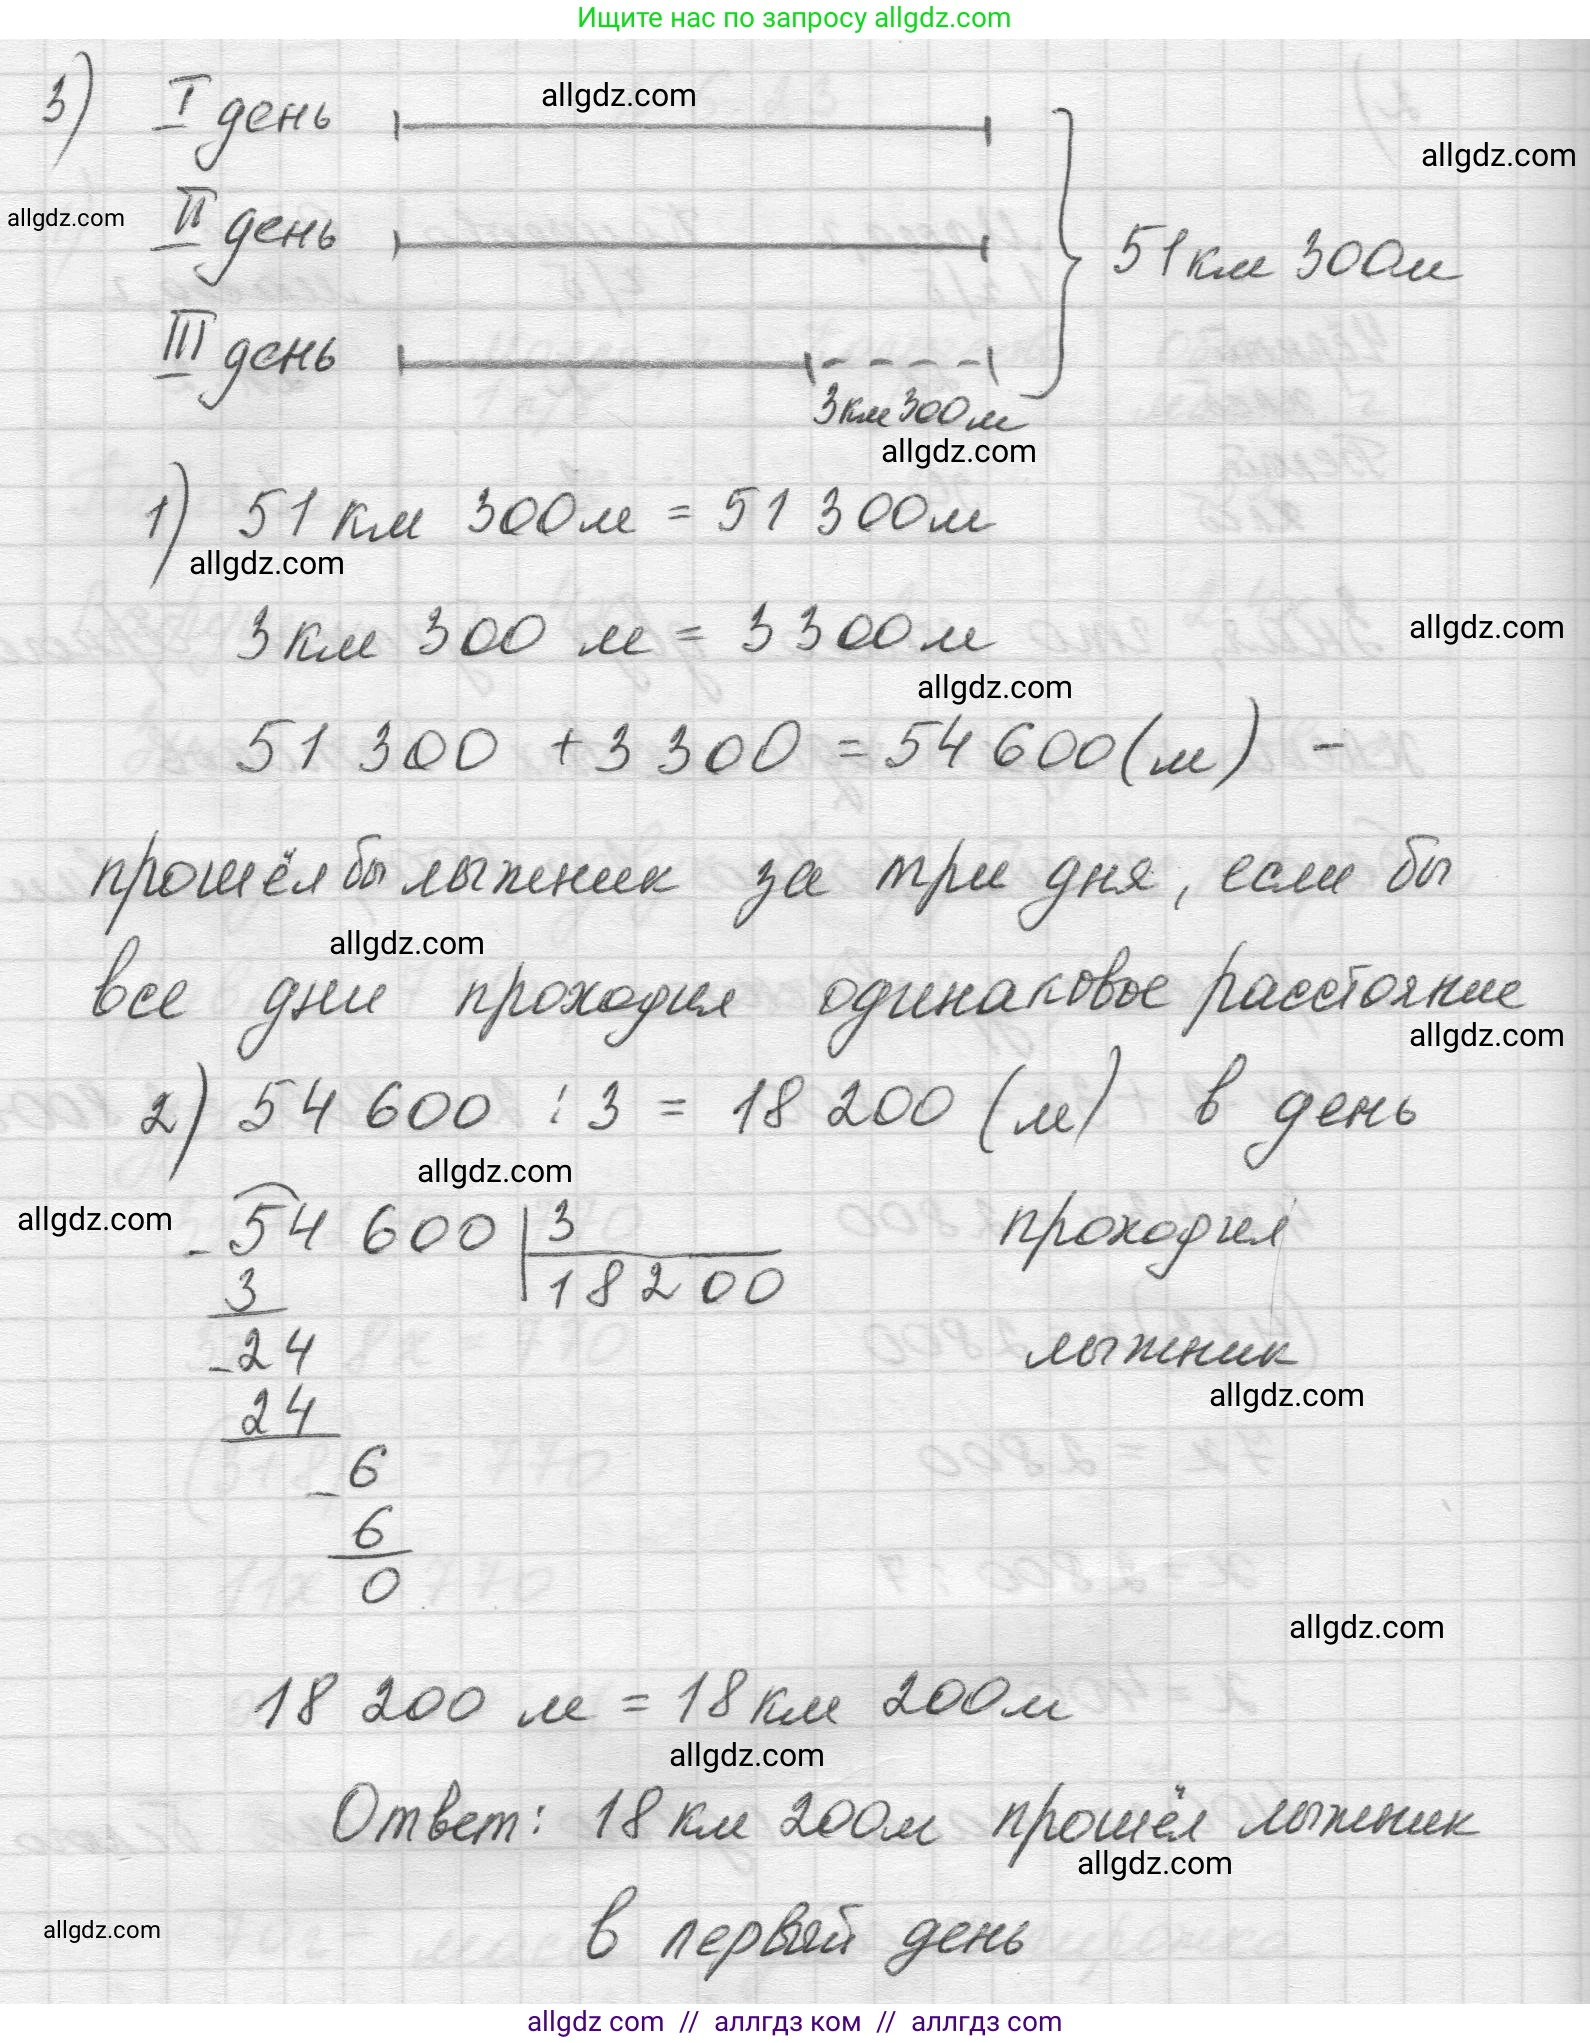 Ищите нас по запросу allgdz.com
3) I день
allgdz.com
allgdz.com
allgdz.com
II день
51 км 300 м
III день
3 км 300 м
allgdz.com
1) 51 км 300 м = 51 300 м
allgdz.com
3 км 300 м = 3 300 м
allgdz.com
allgdz.com
51 300 + 3 300 = 54 600 (м) -
прошёл бы лыжник за три дня, если бы
allgdz.com
все дни проходил одинаковое расстояние
allgdz.com
2) 54 600 : 3 = 18 200 (м) в день
allgdz.com
allgdz.com
- 54 600 | 3
проходил
3
18200
- 24
лыжник
allgdz.com
24
- 6
6
0
allgdz.com
18 200 м = 18 км 200 м
allgdz.com
Ответ: 18 км 200 м прошёл лыжник
allgdz.com
allgdz.com
в первый день
allgdz.com // аллгдз ком // аллгдз com